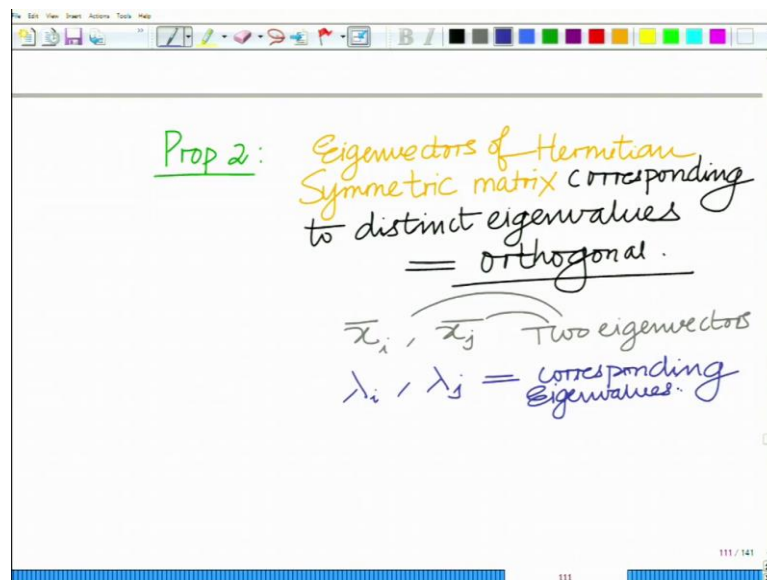 File Edit View Insert Actions Tools Help
B I
Prop 2: Eigenvectors of Hermitian
Symmetric matrix corresponding
to distinct eigenvalues
= orthogonal.
x̅ᵢ, x̅ⱼ Two eigenvectors
λᵢ, λⱼ = corresponding
Eigenvalues.
111 / 141
111